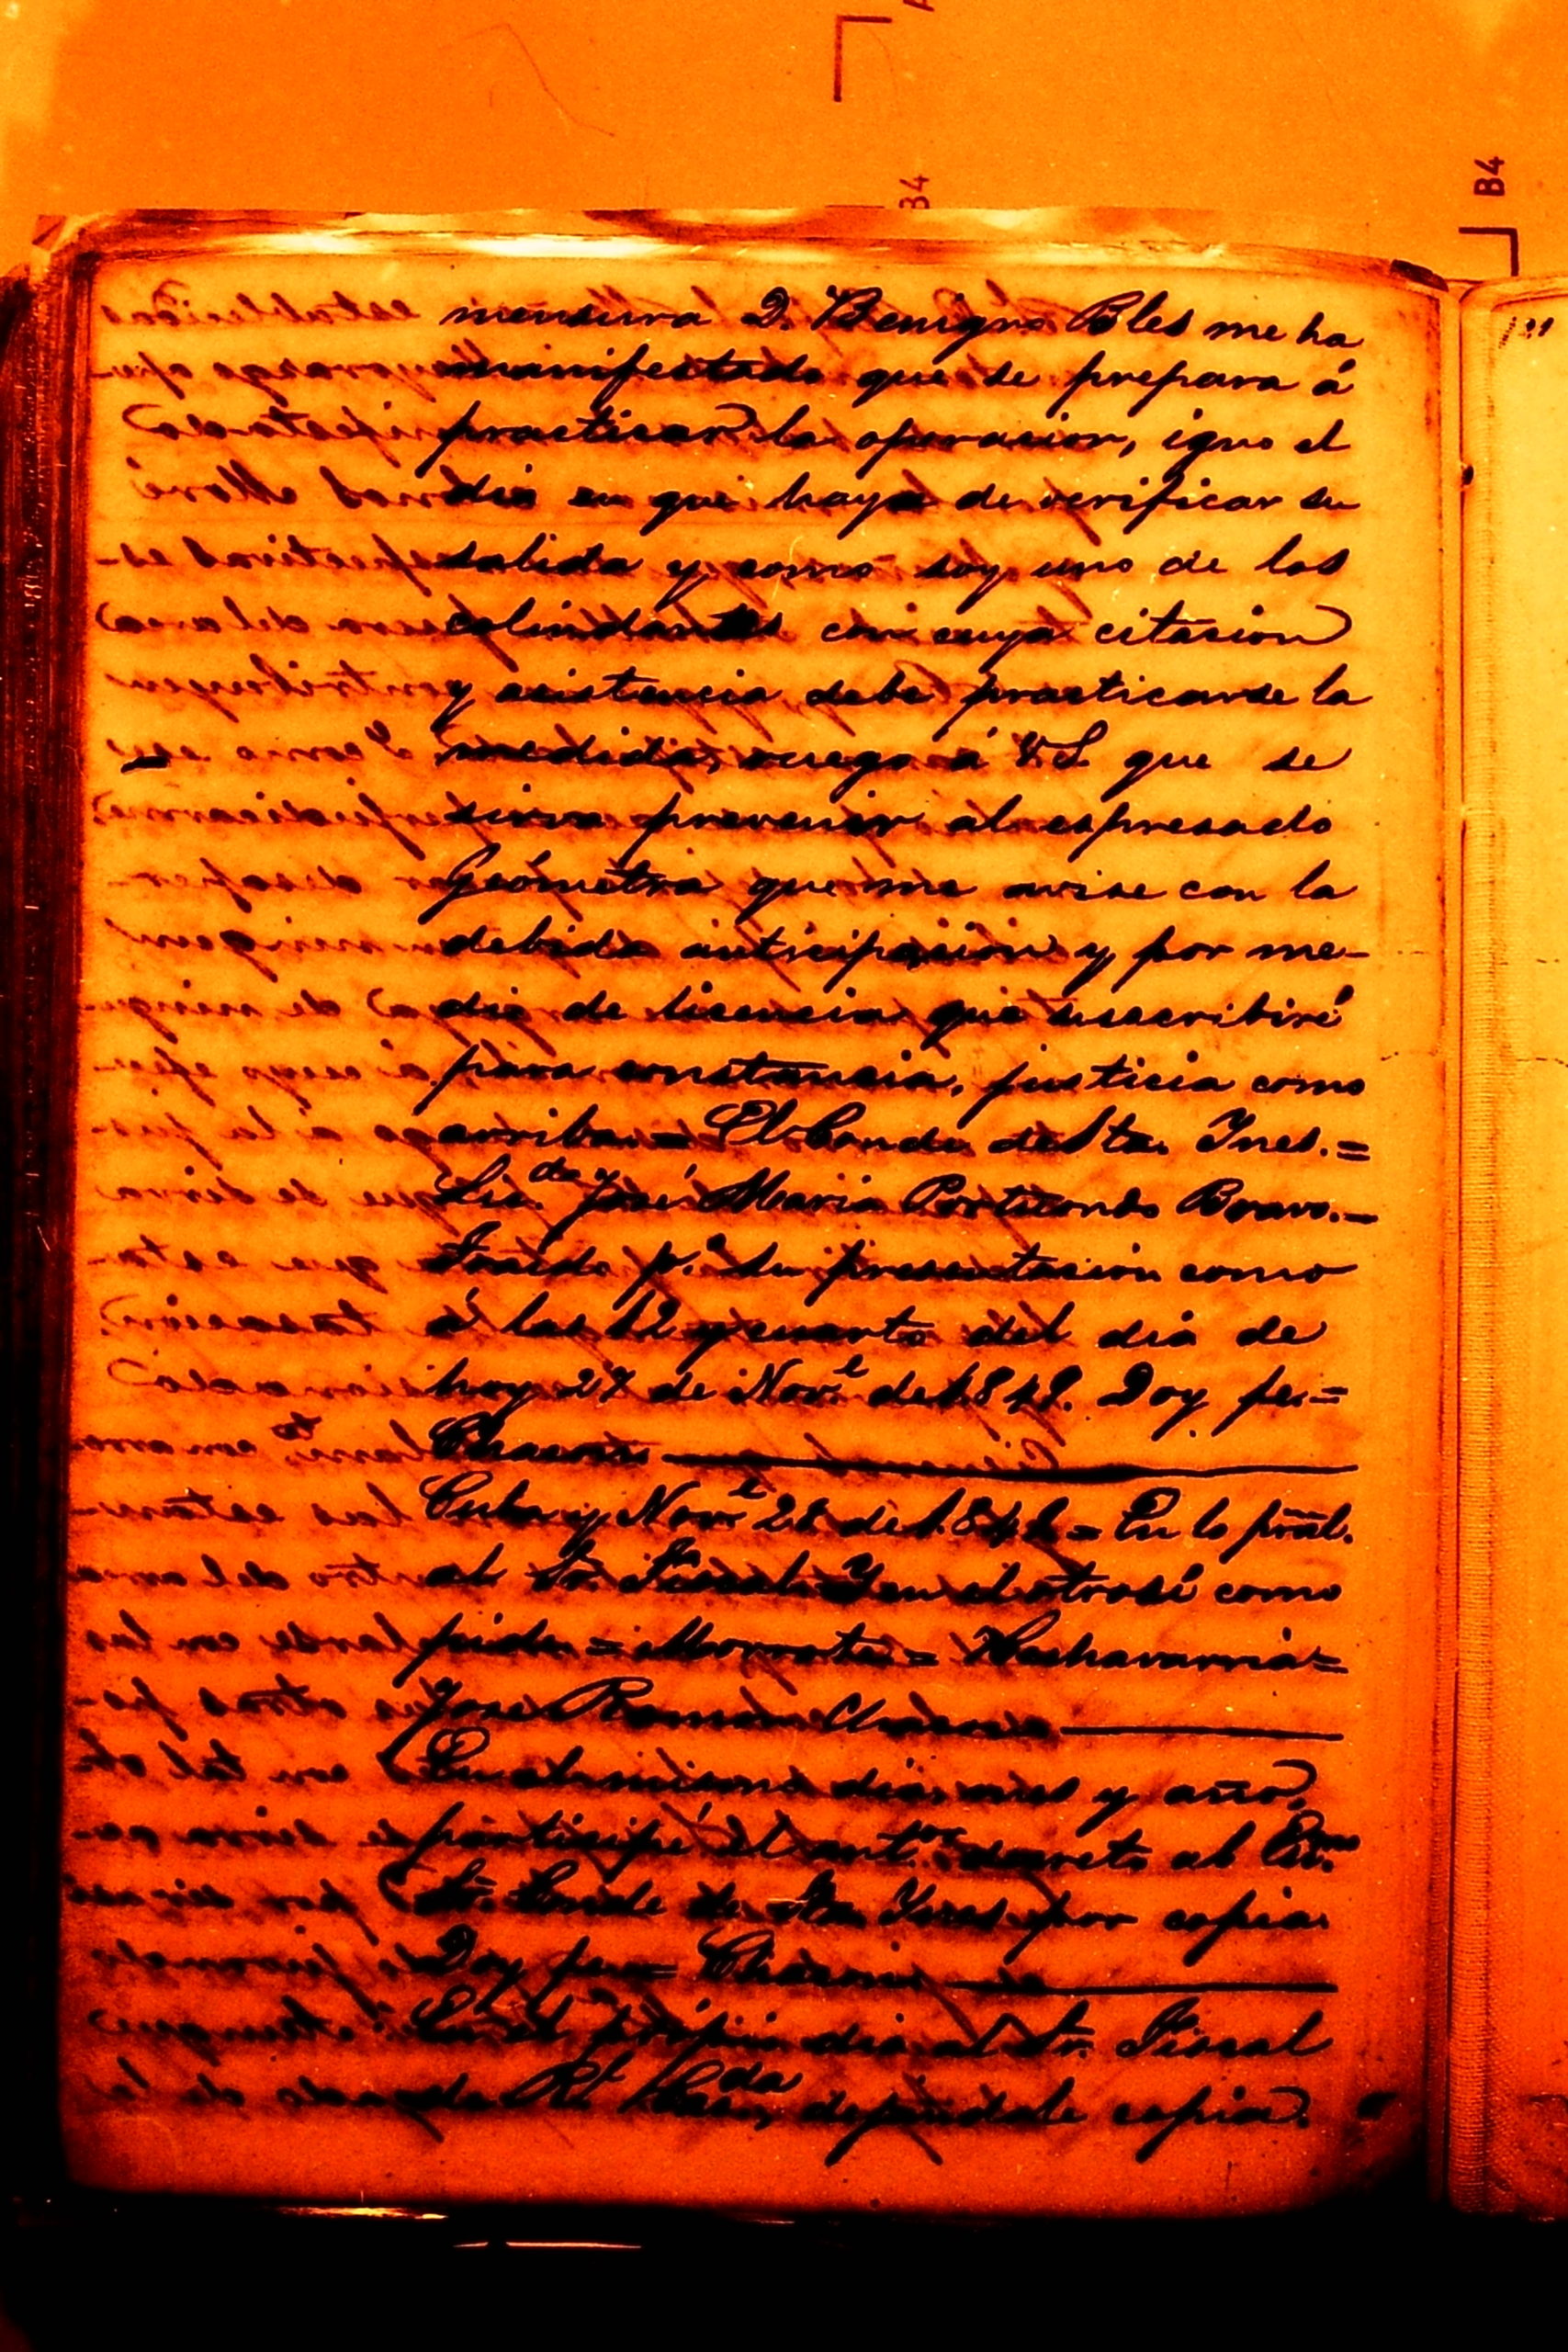 B4
B4
131
mensura D. Benigno Bles me ha
manifestado que se prepara á
practicar la operacion, igno el
dia en que haya de verificar su
salida y como soy uno de los
colindantes con cuya citacion
y asistencia debe practicarse la
medida, ocurro á V.S. que se
sirva prevenir al espresado
Geómetra que me avise con la
debida anticipacion y por me-
dio de licencia que suscribiré
para constancia, justicia como
arriba = El Conde de Sta. Ines. =
Licdo José Maria Portuondo Bravo. -
su presentacion como
á las 12 y cuarto del dia de
hoy 27 de Nove de 1848. Doy fe =
Cuba y Nove 28 de 1848 = En lo prãl.
al Sr. Fiscal. Y en el otrosí como
pide = = Hechavarria =
Jose Ramon
En el mismo dia, mes y año,
participé el antor decreto al Exmo
Sr. Conde de Sta Ynes por copia.
Doy fe =
En el propio dia al Sr. Fiscal
de Rl Hacda, dejandole copia.